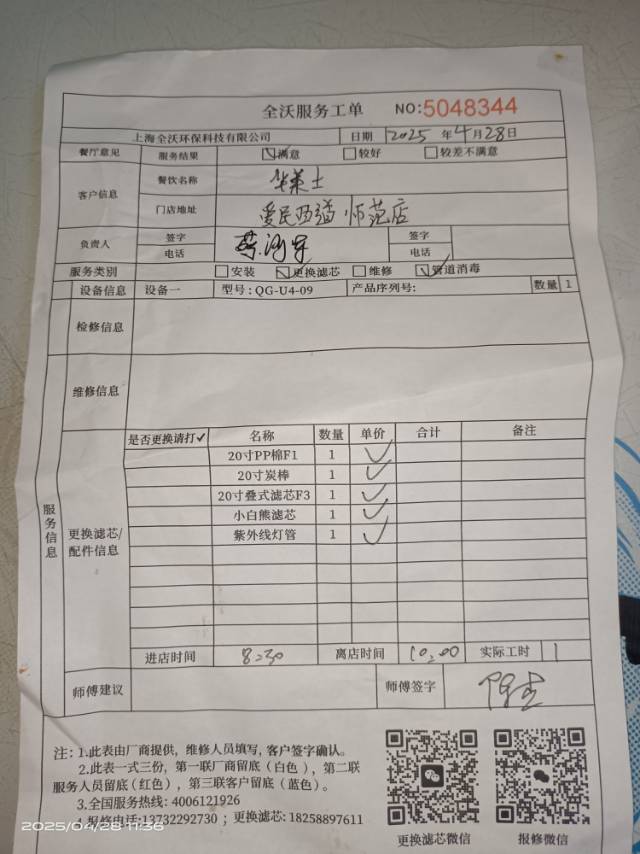 全沃服务工单 NO:5048344
上海全沃环保科技有限公司 日期 2025 年 4 月 28 日
餐厅意见 服务结果 ☑满意 □较好 □较差不满意
客户信息 餐饮名称 华莱士
门店地址 爱民西道 师范店
负责人 签字 签字
电话 电话
服务类别 □安装 ☑更换滤芯 □维修 ☑管道消毒
设备信息 设备一 型号:QG-U4-09 产品序列号: 数量 1
检修信息
维修信息
服务信息
更换滤芯/配件信息
是否更换请打✓ 名称 数量 单价 合计 备注
20寸PP棉F1 1 ✓
20寸炭棒 1 ✓
20寸叠式滤芯F3 1 ✓
小白熊滤芯 1 ✓
紫外线灯管 1 ✓
进店时间 8:30 离店时间 10:00 实际工时 1
师傅建议 师傅签字
注:1.此表由厂商提供,维修人员填写,客户签字确认。
2.此表一式三份,第一联厂商留底(白色),第二联
服务人员留底(红色),第三联客户留底(蓝色)。
3.全国服务热线:4006121926
4.报修电话:13732292730;更换滤芯:18258897611
更换滤芯微信 报修微信
2025/04/28 11:36